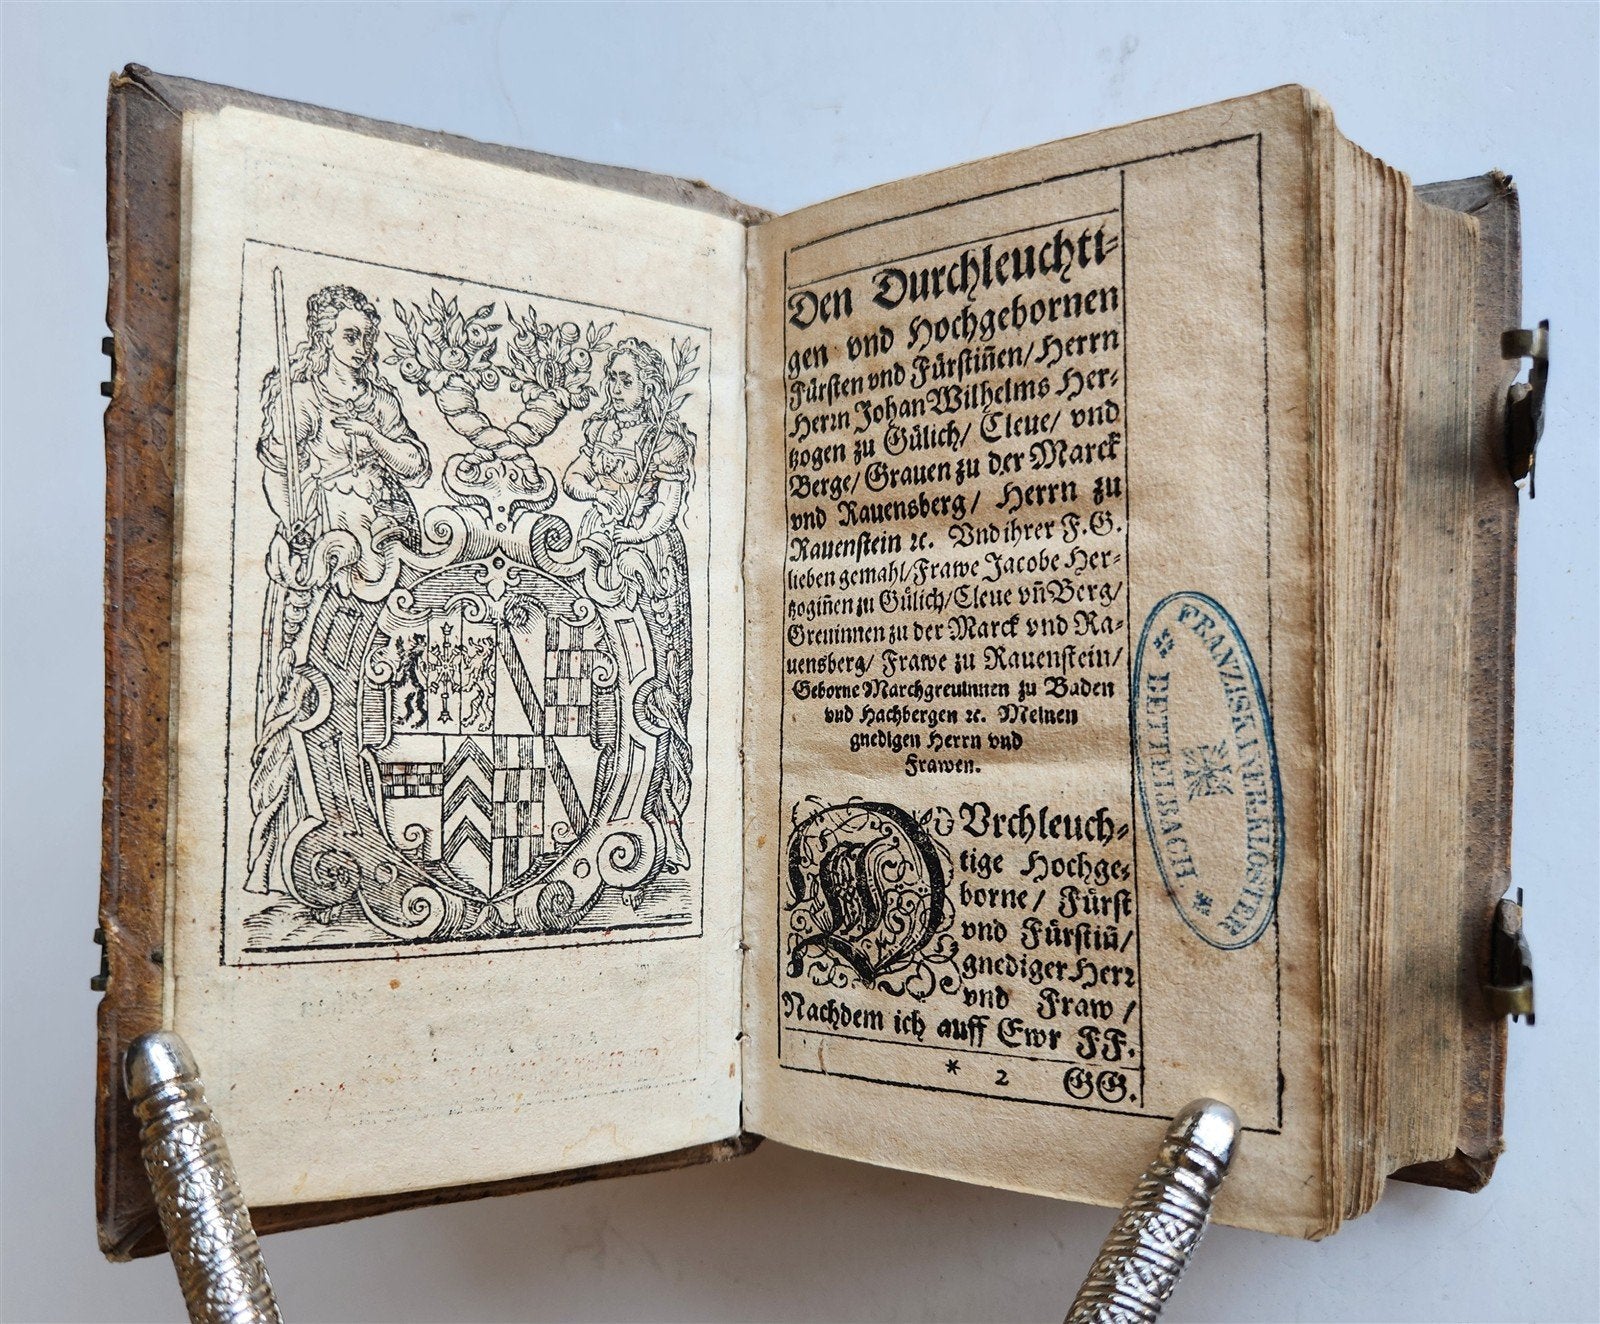 Den Durchleuchti-
gen vnd Hochgebornen
Fürsten vnd Fürstiñen/ Herrn
Herrn Johan Wilhelms Her-
tzogen zu Gülich/ Cleue/ vnd
Berge/ Grauen zu der Marck
vnd Rauensberg/ Herrn zu
Rauenstein ꝛc. Vnd ihrer F. G.
lieben gemahl/ Frawe Jacobe Her-
tzogiñen zu Gülich/ Cleue vñ Berg/
Greuinnen zu der Marck vnd Ra-
uensberg/ Frawe zu Rauenstein/
Geborne Marchgreuinnen zu Baden
vnd Hachbergen ꝛc. Meinen
gnedigen Herrn vnd
Frawen.
DVrchleuch-
tige Hochge-
borne/ Fürst
vnd Fürstiñ/
gnediger Herr
vnd Fraw/
Nachdem ich auff Ewr FF.
* 2 GG.
FRANZISKANERKLOSTER
* DETTELBACH *